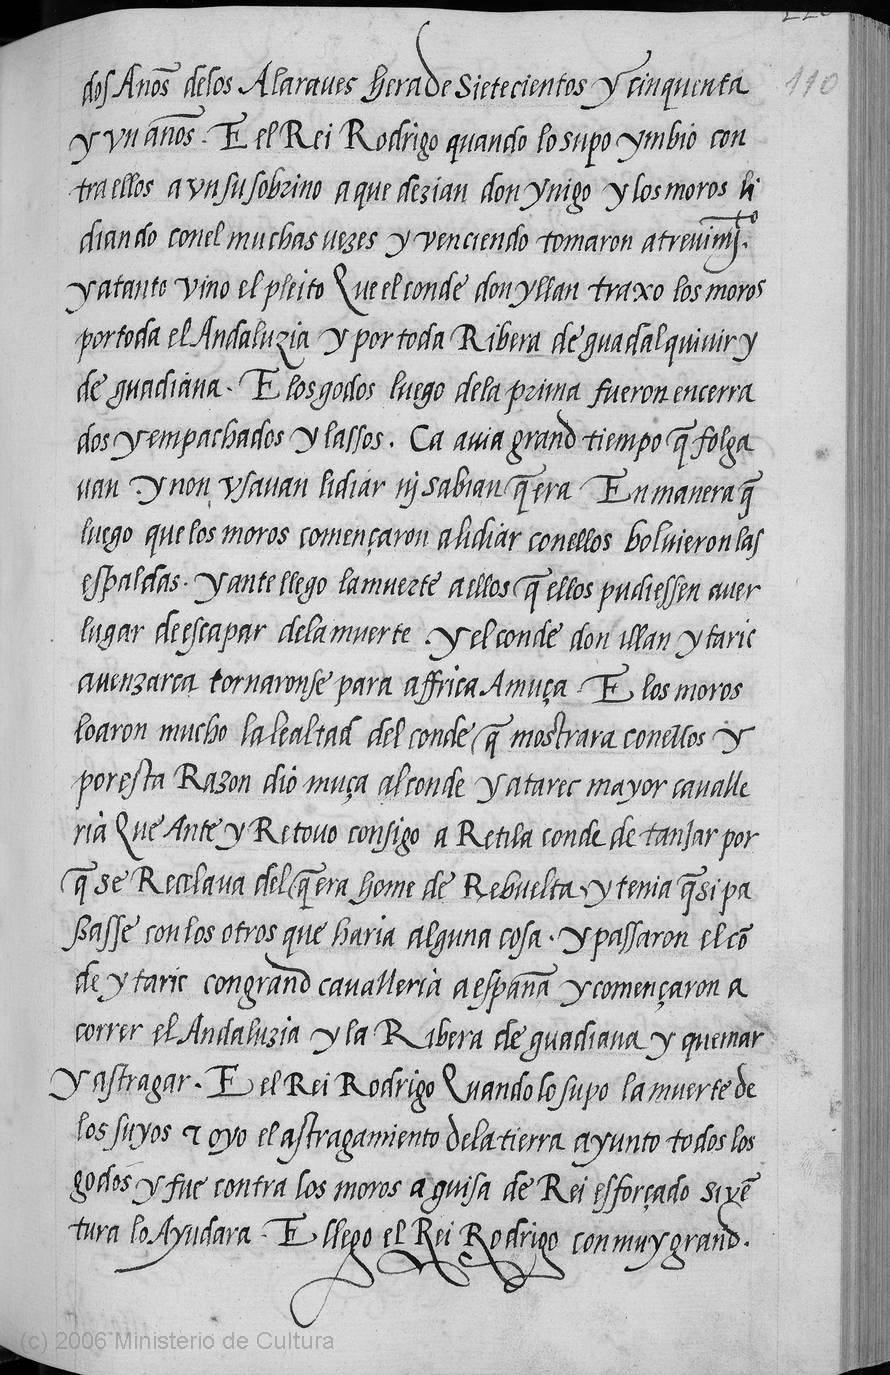 110
dos Anos̃ delos Alaraues hera de Sietecientos y cinquenta
y vn años. E el Rei Rodrigo quando lo supo ymbio con
tra ellos a vn su sobrino a que dezian don ynigo y los moros li
diando conel muchas uezes y venciendo tomaron atreuimj.to
y atanto vino el pleito Que el conde don yllan traxo los moros
por toda el Andaluzia y por toda Ribera de guadalquiuir y
de guadiana. E los godos luego dela prima fueron encerra
dos y empachados y lassos. Ca auia grand tiempo q̃ folga
uan y non vsauan lidiar nj sabian q̃ era En manera q̃
luego que los moros començaron a lidiar conellos boluieron las
espaldas. y ante llego la muerte a ellos q̃ ellos pudiessen auer
lugar de escapar dela muerte. y el conde don illan y taric
auenzarca tornaronse para affrica A muça. E los moros
loaron mucho la lealtad del conde q̃ mostrara conellos y
por esta Razon dio muça al conde y a tarec mayor caualle
ria Que Ante y Retouo consigo a Retila conde de tanjar por
q̃ se Recelaua del q̃ era home de Rebuelta y tenia q̃ si pa
ßasse con los otros que haria alguna cosa. y passaron el cõ
de y taric con grand caualleria a españa y començaron a
correr el Andaluzia y la Ribera de guadiana y quemar
y astragar. E el Rei Rodrigo Quando lo supo la muerte de
los suyos ⁊ oyo el astragamiento dela tierra ayunto todos los
godos y fue contra los moros a guisa de Rei esforçado si vẽ
tura lo Ayudara. E llego el Rei Rodrigo con muy grand.
(c) 2006 Ministerio de Cultura